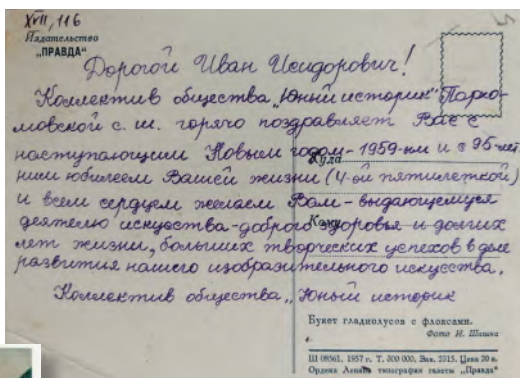 XVII, 116
Издательство
„ПРАВДА“
Дорогой Иван Исидорович!
Коллектив общества „Юный историк" Пархо-
мовской с. ш. горячо поздравляет Вас с
наступающим Новым годом - 1959-км и с 95-лет
ним юбилеем Вашей жизни (4-ой пятилеткой)
и всем сердцем желаем Вам - выдающемуся
деятелю искусства - доброго здоровья и долгих
лет жизни, больших творческих успехов в деле
развития нашего изобразительного искусства.
Коллектив общества „Юный историк
Куда
Кому
Букет гладиолусов с флоксами.
Фото И. Шагина
Ш 08561. 1957 г. Т. 300 000. Зак. 2315. Цена 20 к.
Ордена Ленина типография газеты „Правда“